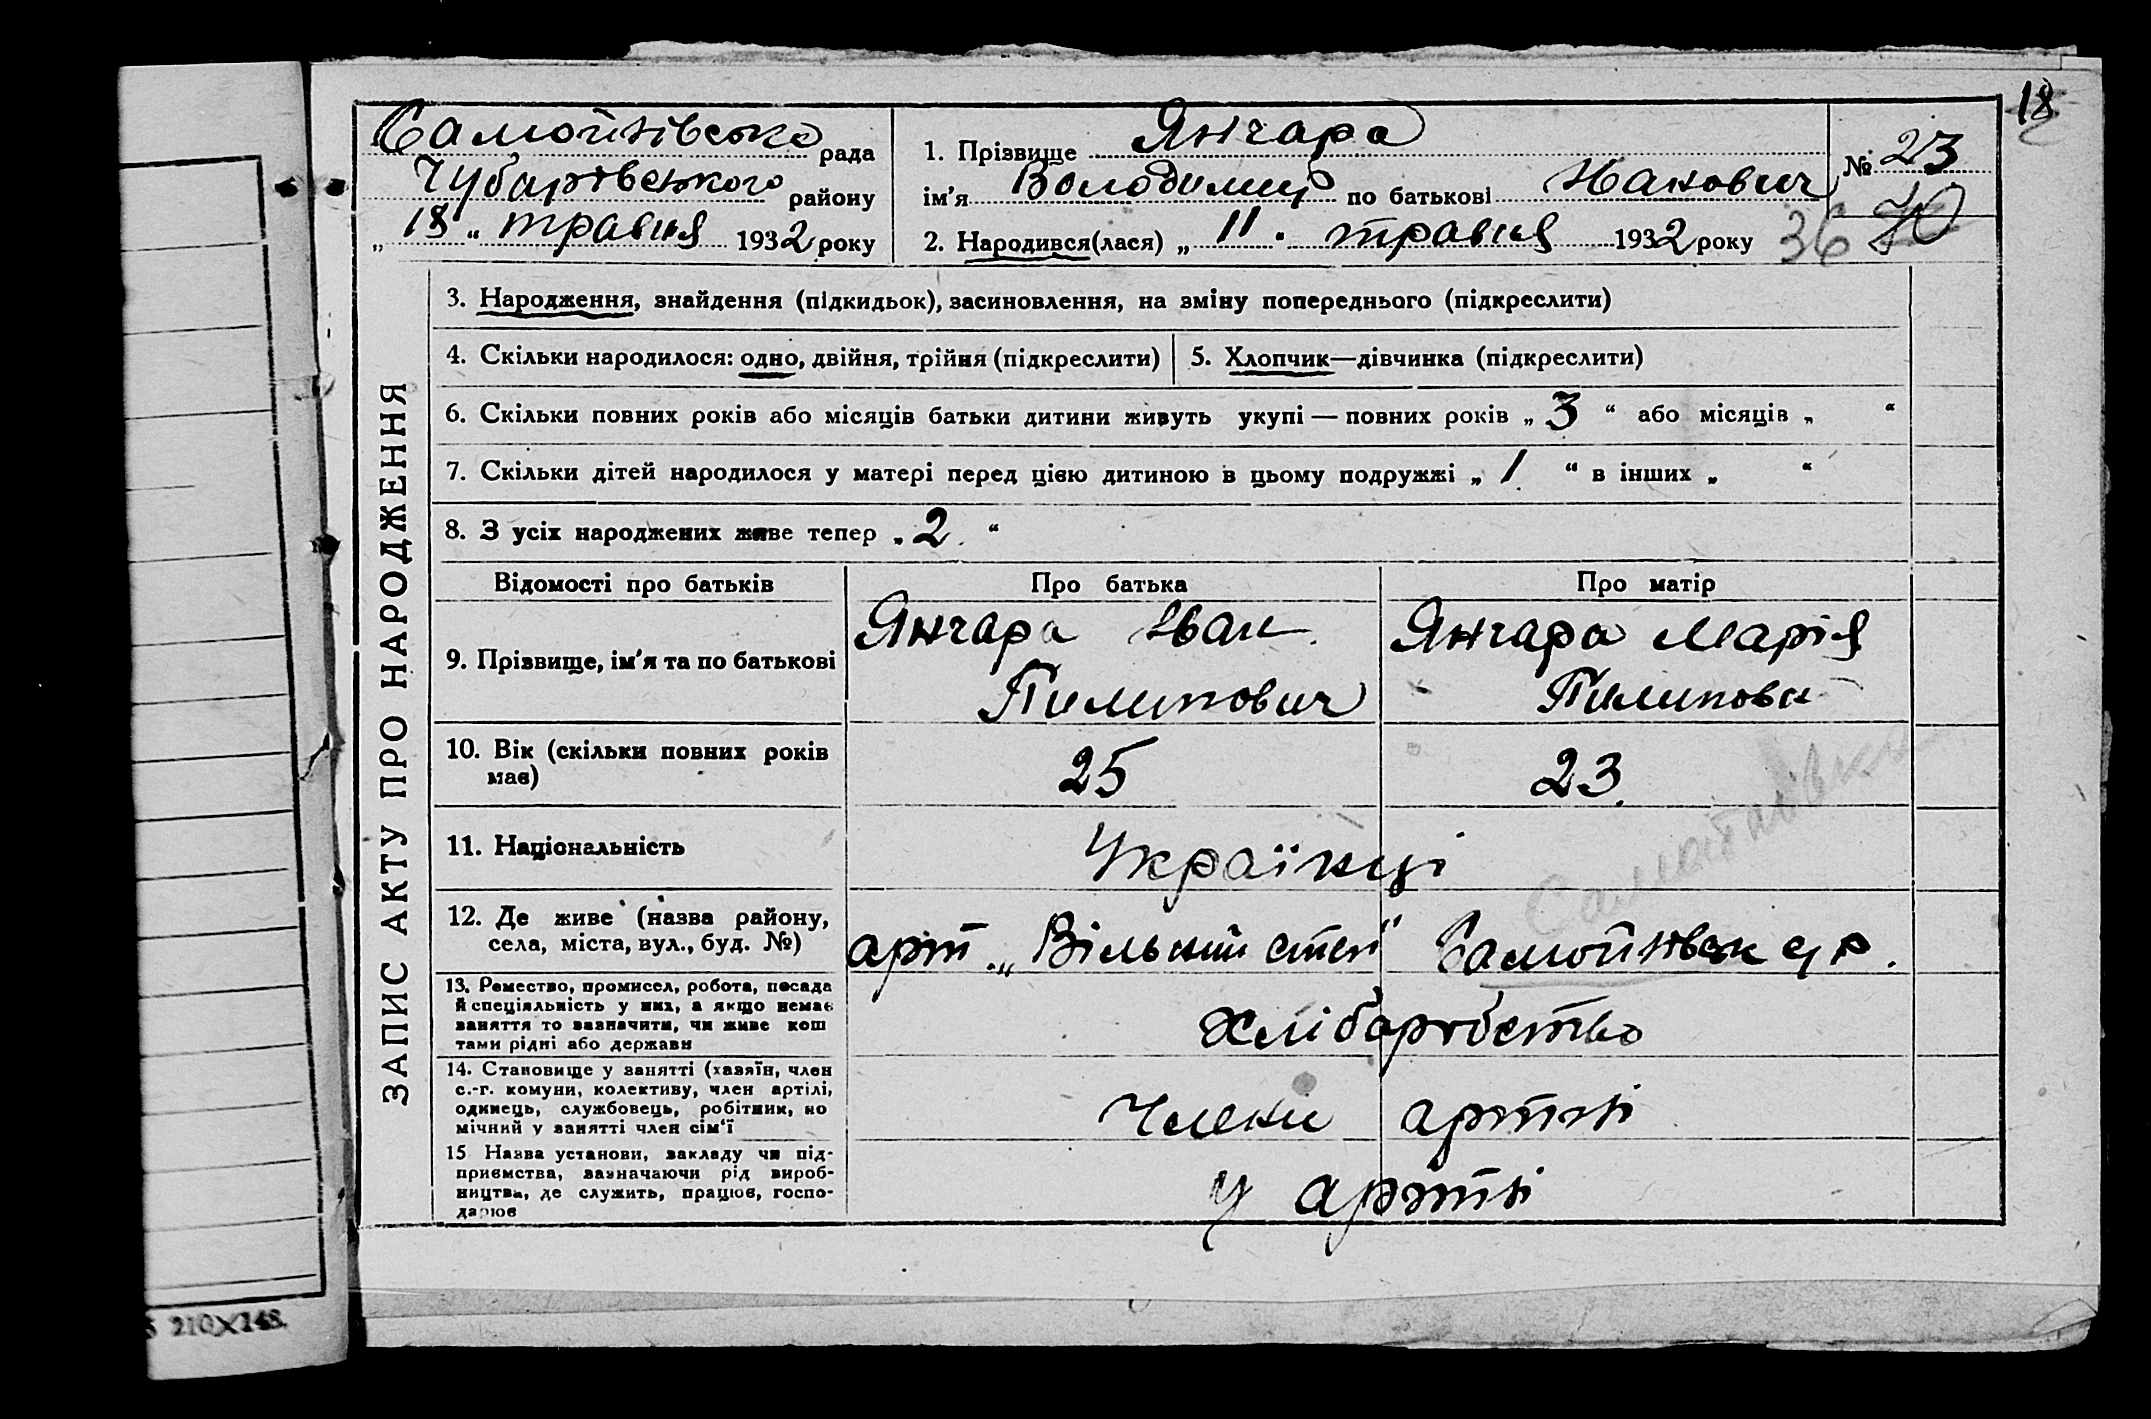 18
Самойлівська рада
Чубарівського району
„ 18 “ травня 1932 року
1. Прізвище Янчара
ім'я Володимир по батькові Іванович
2. Народився(лася) „ 11 . травня 1932 року
№ 23
36
ЗАПИС АКТУ ПРО НАРОДЖЕННЯ
3. Народження, знайдення (підкидьок), засиновлення, на зміну попереднього (підкреслити)
4. Скільки народилося: одно, двійня, трійня (підкреслити)
5. Хлопчик—дівчинка (підкреслити)
6. Скільки повних років або місяців батьки дитини живуть укупі — повних років „ 3 “ або місяців „ “
7. Скільки дітей народилося у матері перед цією дитиною в цьому подружжі „ 1 “ в інших „ “
8. З усіх народжених живе тепер „ 2 “
Відомості про батьків
Про батька
Про матір
9. Прізвище, ім'я та по батькові
Янчара Іван
Пилипович
Янчара Марія
Пилипов
10. Вік (скільки повних років
має)
25
23
11. Національність
Українці
12. Де живе (назва району,
села, міста, вул., буд. №)
арт. „Вільний степ“
13. Ремество, промисел, робота, посада
й спеціяльність у них, а якщо немає
заняття то зазначити, чи живе кош
тами рідні або держави
Хліборобство
14. Становище у занятті (хазяїн, член
с.-г. комуни, колективу, член артілі,
одинець, службовець, робітник, по
мічний у занятті член сім'ї
Члени артілі
15 Назва установи, закладу чи під-
приємства, зазначаючи рід вироб-
ництва, де служить, працює, госпо-
дарює
У артілі
210X148.